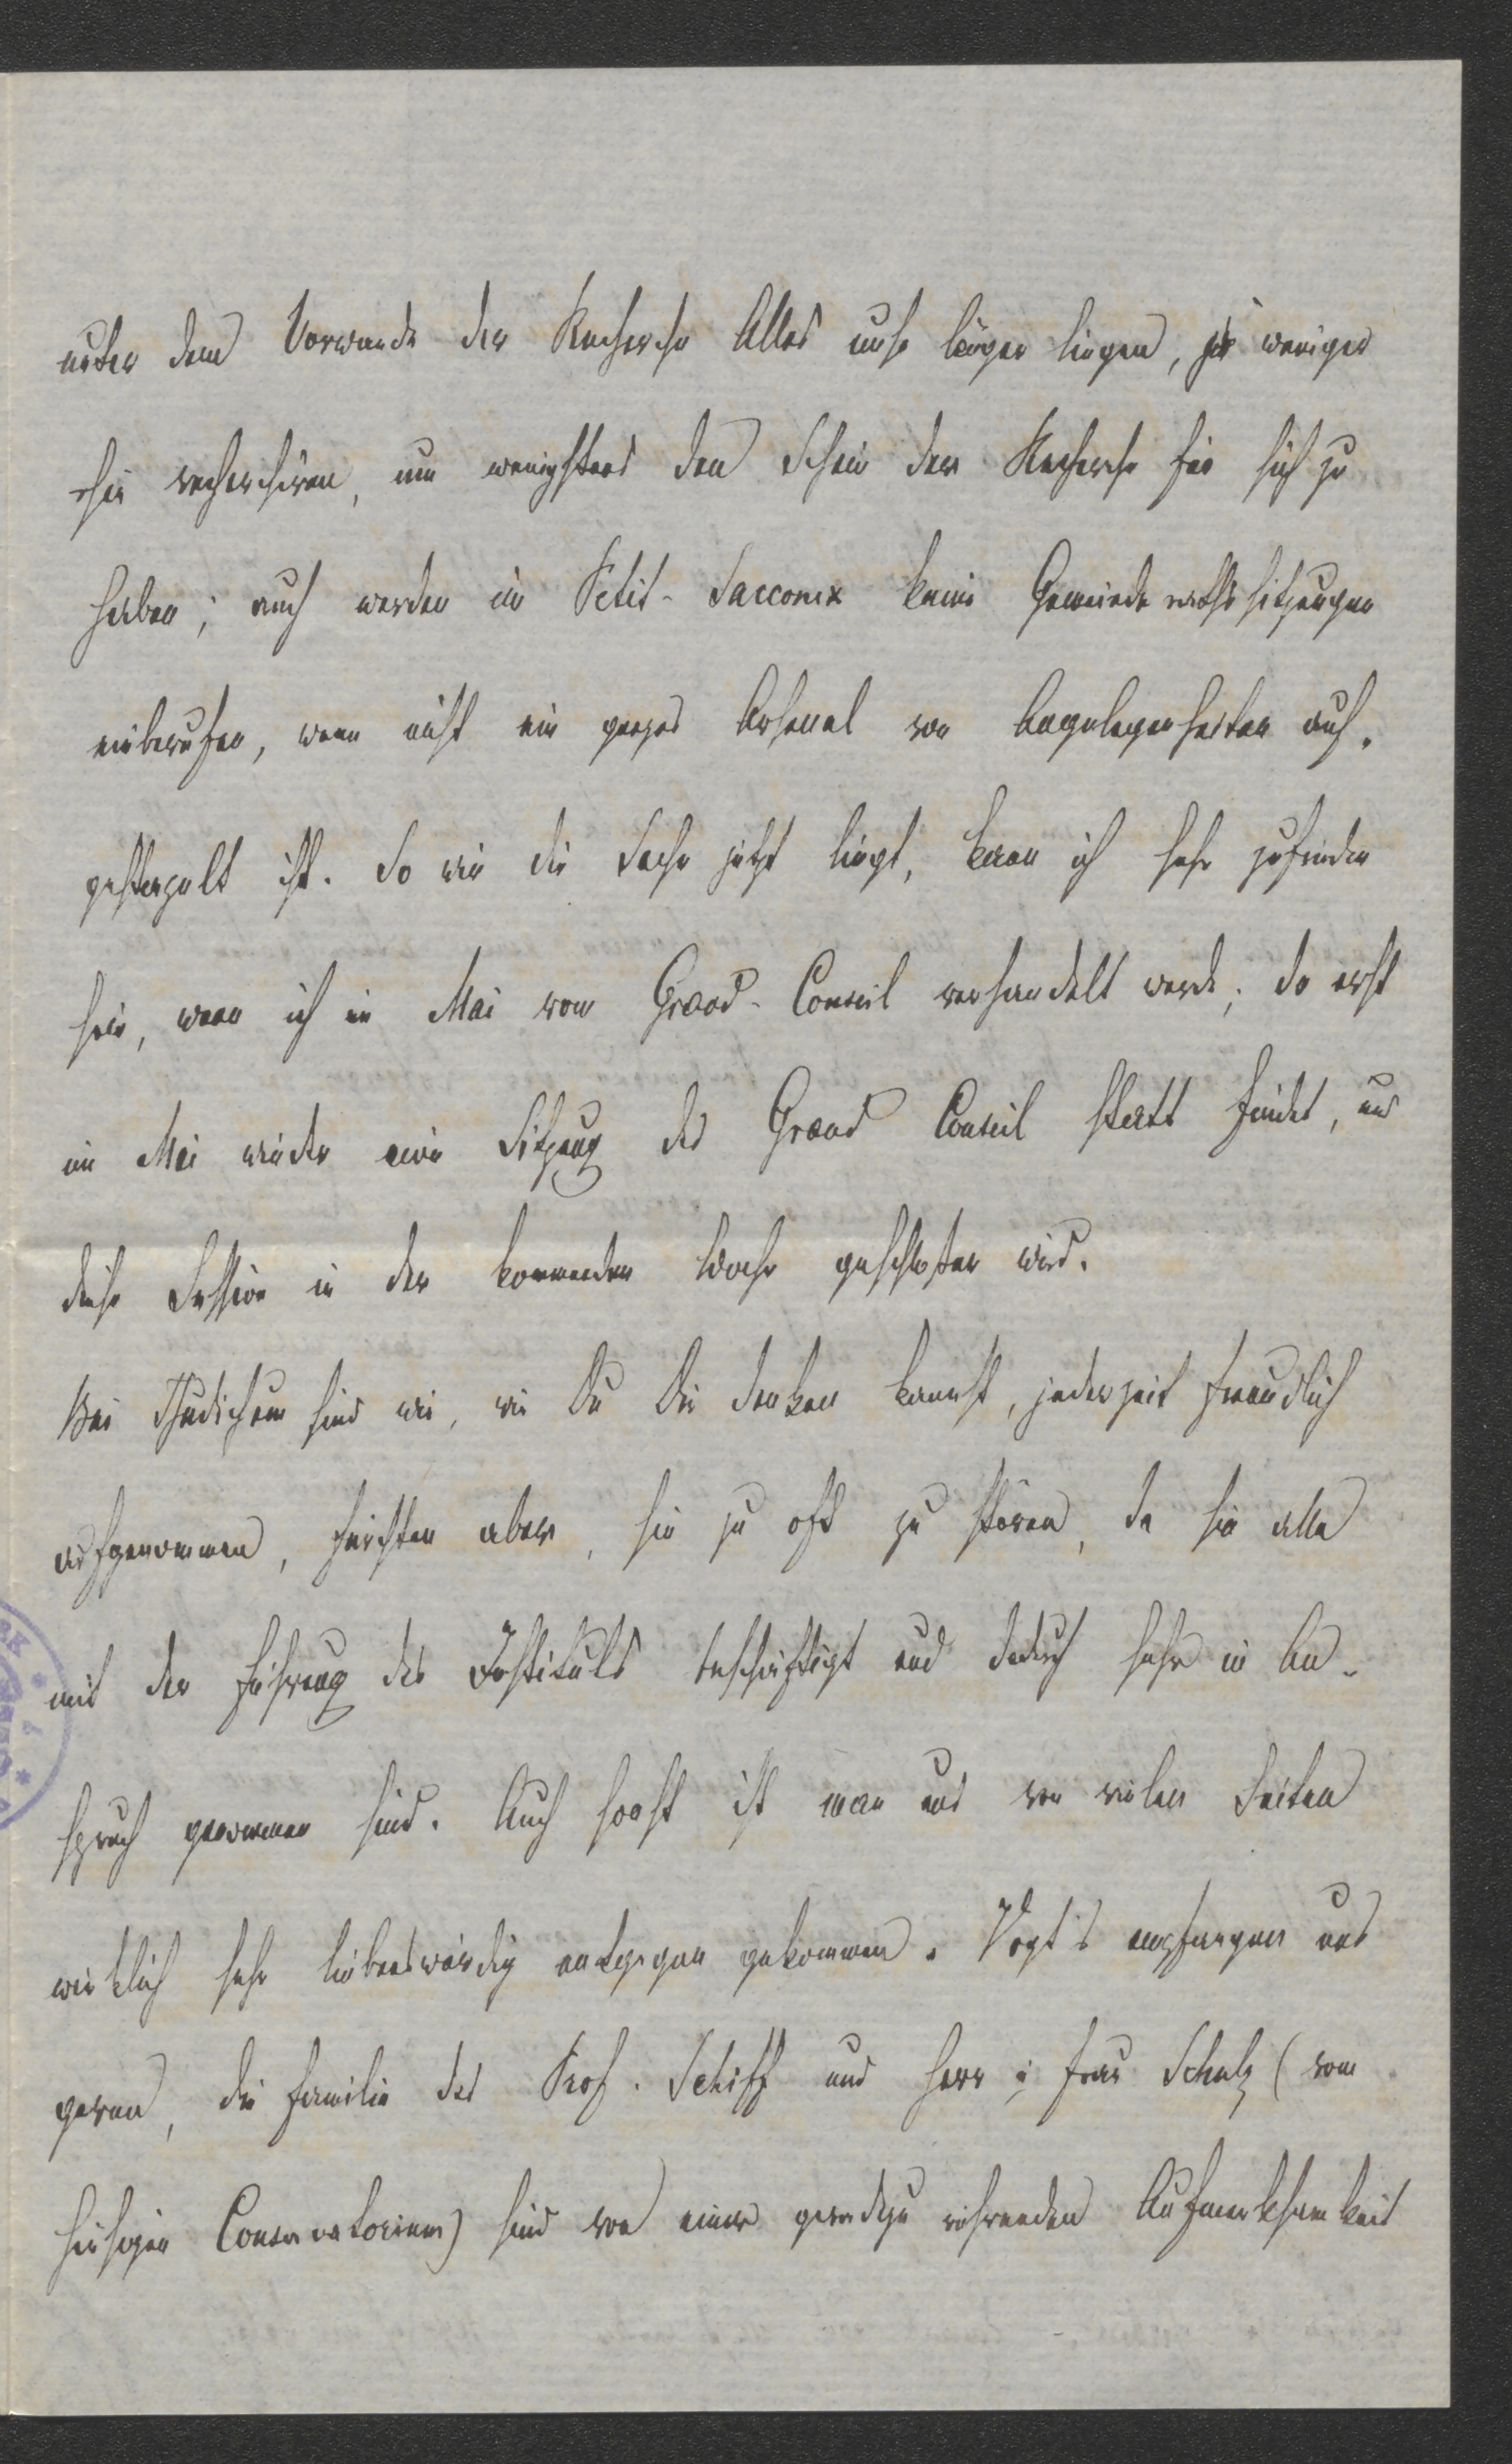 unter dem Vorwande der Recherche Alles umso länger liegen, je weniger
sie recherchiren, um wenigstens den Schein der Recherche für sich zu
haben; auch werden in Petit-Sacconex keine Gemeinderathssitzungen
einberufen, wenn nicht ein ganzes Arsenal von Angelegenheiten auf-
gestapelt ist. So wie die Sache jetzt liegt, kann ich sehr zufrieden
sein, wenn ich im Mai vom Grand-Conseil verhandelt werde; da erst
im Mai wieder eine Sitzung des Grand Conseil statt findet, und
diese Session in der kommenden Woche geschlossen wird.
Bei Thudichum sind wir, wie Du Dir denken kannst, jederzeit freundlich
aufgenommen, fürchten aber, sie zu oft zu stören, da sie alle
mit der Führung des Instituts beschäftigt und dadurch sehr in An-
spruch genommen sind. Auch sonst ist man uns von vielen Seiten
wirklich sehr liebenswürdig entgegen gekommen. Vogt's empfangen uns
gerne, die Familie des Prof. Schiff und Herr & Frau Schulz (vom
hiesigen Conservatorium) sind von einer geradezu rührenden Aufmerksamkeit